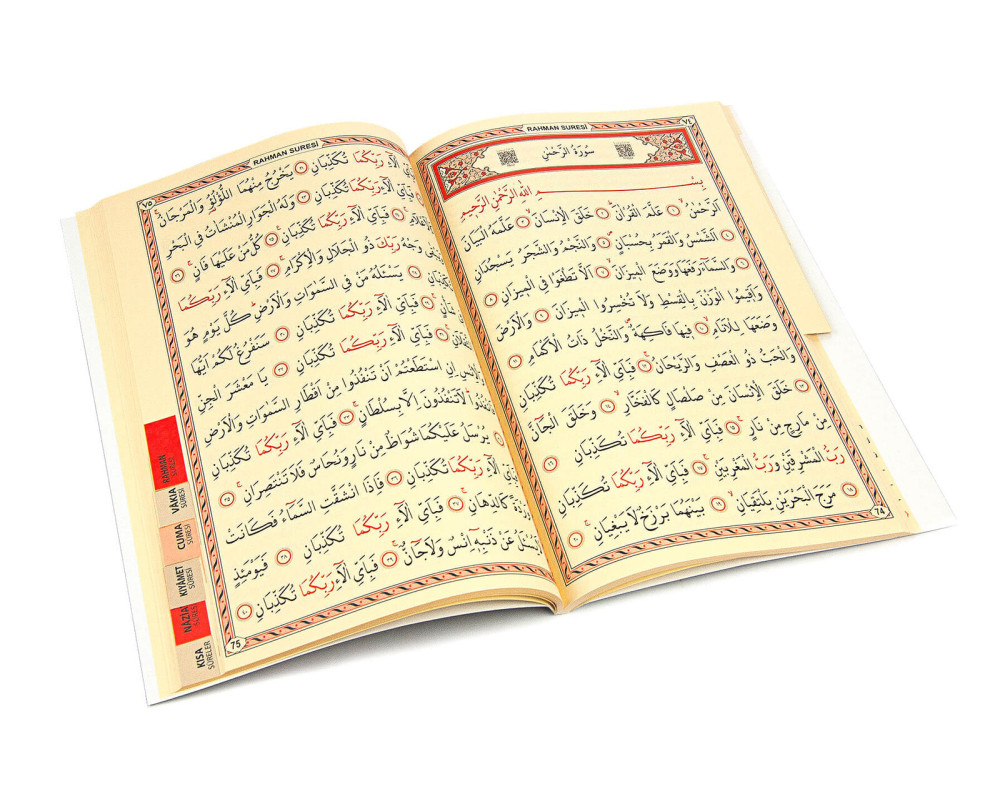 RAHMAN SURESİ ٧٤
سُورَةُ الرَّحْمٰنِ
بِسْمِ اللّٰهِ الرَّحْمٰنِ الرَّحِيمِ
اَلرَّحْمٰنُۙ ١ عَلَّمَ الْقُرْاٰنَۜ ٢ خَلَقَ الْاِنْسَانَۙ ٣ عَلَّمَهُ الْبَيَانَ
٤ اَلشَّمْسُ وَالْقَمَرُ بِحُسْبَانٍۖ ٥ وَالنَّجْمُ وَالشَّجَرُ يَسْجُدَانِ
٦ وَالسَّمَٓاءَ رَفَعَهَا وَوَضَعَ الْمِيزَانَۙ ٧ اَلَّا تَطْغَوْا فِي الْمِيزَانِ ٨
وَاَقِيمُوا الْوَزْنَ بِالْقِسْطِ وَلَا تُخْسِرُوا الْمِيزَانَ ٩ وَالْاَرْضَ
وَضَعَهَا لِلْاَنَامِۙ ١٠ فِيهَا فَاكِهَةٌۖ وَالنَّخْلُ ذَاتُ الْاَكْمَامِۖ ١١
وَالْحَبُّ ذُو الْعَصْفِ وَالرَّيْحَانُۚ ١٢ فَبِاَيِّ اٰلَٓاءِ رَبِّكُمَا تُكَذِّبَانِ
١٣ خَلَقَ الْاِنْسَانَ مِنْ صَلْصَالٍ كَالْفَخَّارِۙ ١٤ وَخَلَقَ الْجَٓانَّ
مِنْ مَارِجٍ مِنْ نَارٍۚ ١٥ فَبِاَيِّ اٰلَٓاءِ رَبِّكُمَا تُكَذِّبَانِ ١٦
رَبُّ الْمَشْرِقَيْنِ وَرَبُّ الْمَغْرِبَيْنِۚ ١٧ فَبِاَيِّ اٰلَٓاءِ رَبِّكُمَا تُكَذِّبَانِ
١٨ مَرَجَ الْبَحْرَيْنِ يَلْتَقِيَانِۙ ١٩ بَيْنَهُمَا بَرْزَخٌ لَا يَبْغِيَانِۚ ٢٠
74
RAHMAN SURESİ ٧٥
اٰلَٓاءِ رَبِّكُمَا تُكَذِّبَانِ ٢١ يَخْرُجُ مِنْهُمَا اللُّؤْلُؤُ۬ وَالْمَرْجَانُۚ
اٰلَٓاءِ رَبِّكُمَا تُكَذِّبَانِ ٢٣ وَلَهُ الْجَوَارِ الْمُنْشَاٰتُ فِي الْبَحْرِ
فَبِاَيِّ اٰلَٓاءِ رَبِّكُمَا تُكَذِّبَانِ۟ ٢٥ كُلُّ مَنْ عَلَيْهَا فَانٍۚ ٢٦
وَجْهُ رَبِّكَ ذُو الْجَلَالِ وَالْاِكْرَامِۚ ٢٧ فَبِاَيِّ اٰلَٓاءِ رَبِّكُمَا
٢٨ يَسْـَٔلُهُ مَنْ فِي السَّمٰوَاتِ وَالْاَرْضِۜ كُلَّ يَوْمٍ هُوَ
فَبِاَيِّ اٰلَٓاءِ رَبِّكُمَا تُكَذِّبَانِ ٣٠ سَنَفْرُغُ لَكُمْ اَيُّهَ
فَبِاَيِّ اٰلَٓاءِ رَبِّكُمَا تُكَذِّبَانِ ٣٢ يَا مَعْشَرَ الْجِنِّ
اِنِ اسْتَطَعْتُمْ اَنْ تَنْفُذُوا مِنْ اَقْطَارِ السَّمٰوَاتِ وَالْاَرْضِ
لَا تَنْفُذُونَ اِلَّا بِسُلْطَانٍۚ ٣٣ فَبِاَيِّ اٰلَٓاءِ رَبِّكُمَا تُكَذِّبَانِ
يُرْسَلُ عَلَيْكُمَا شُوَاظٌ مِنْ نَارٍ وَنُحَاسٌ فَلَا تَنْتَصِرَانِۚ ٣٥
اٰلَٓاءِ رَبِّكُمَا تُكَذِّبَانِ ٣٦ فَاِذَا انْشَقَّتِ السَّمَٓاءُ فَكَانَتْ
وَرْدَةً كَالدِّهَانِۚ ٣٧ فَبِاَيِّ اٰلَٓاءِ رَبِّكُمَا تُكَذِّبَانِ ٣٨ فَيَوْمَئِذٍ
عَنْ ذَنْبِهِ اِنْسٌ وَلَا جَٓانٌّۚ ٣٩ فَبِاَيِّ اٰلَٓاءِ رَبِّكُمَا تُكَذِّبَانِ ٤٠
75
RAHMAN SURESİ
VAKIA SÛRESİ
CUMA SÛRESİ
KIYÂMET SÛRESİ
NÂZİA SÛRESİ
KISA SÛRELER